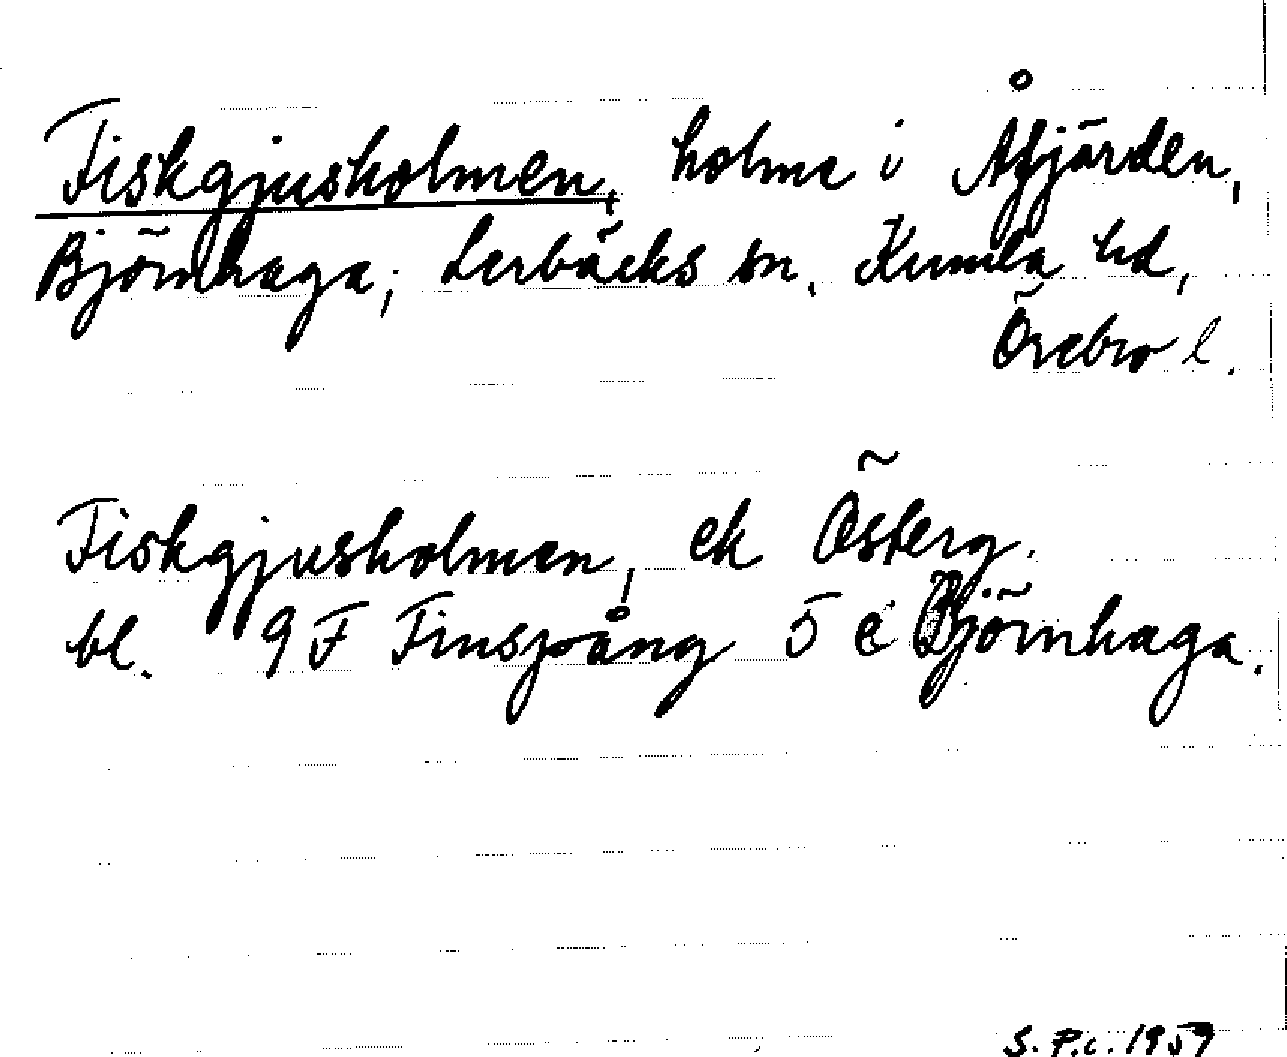 Fiskgjusholmen, holme i Åfjärden,
Björnhaga, Lerbäcks sn, Kumla hd,
Örebro l.
Fiskgjusholmen, ek Österg.
bl. 9F Finspång 5 c Björnhaga.
S. P.c. 1959